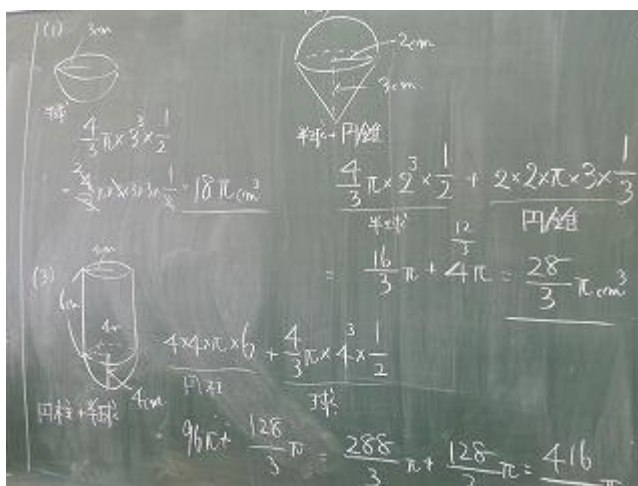 (1)
3cm
半球
4/3 π×3³×1/2
=18πcm³
2cm
3cm
半球+円錐
4/3 π×2³×1/2 + 2×2×π×3×1/3
半球 円錐
12/3
= 16/3 π + 4π = 28/3 π cm³
(3)
4cm
6cm
4cm
円柱+半球
4×4×π×6 + 4/3 π×4³×1/2
円柱 球
= 96π + 128/3 π = 288/3 π + 128/3 π = 416/3 π